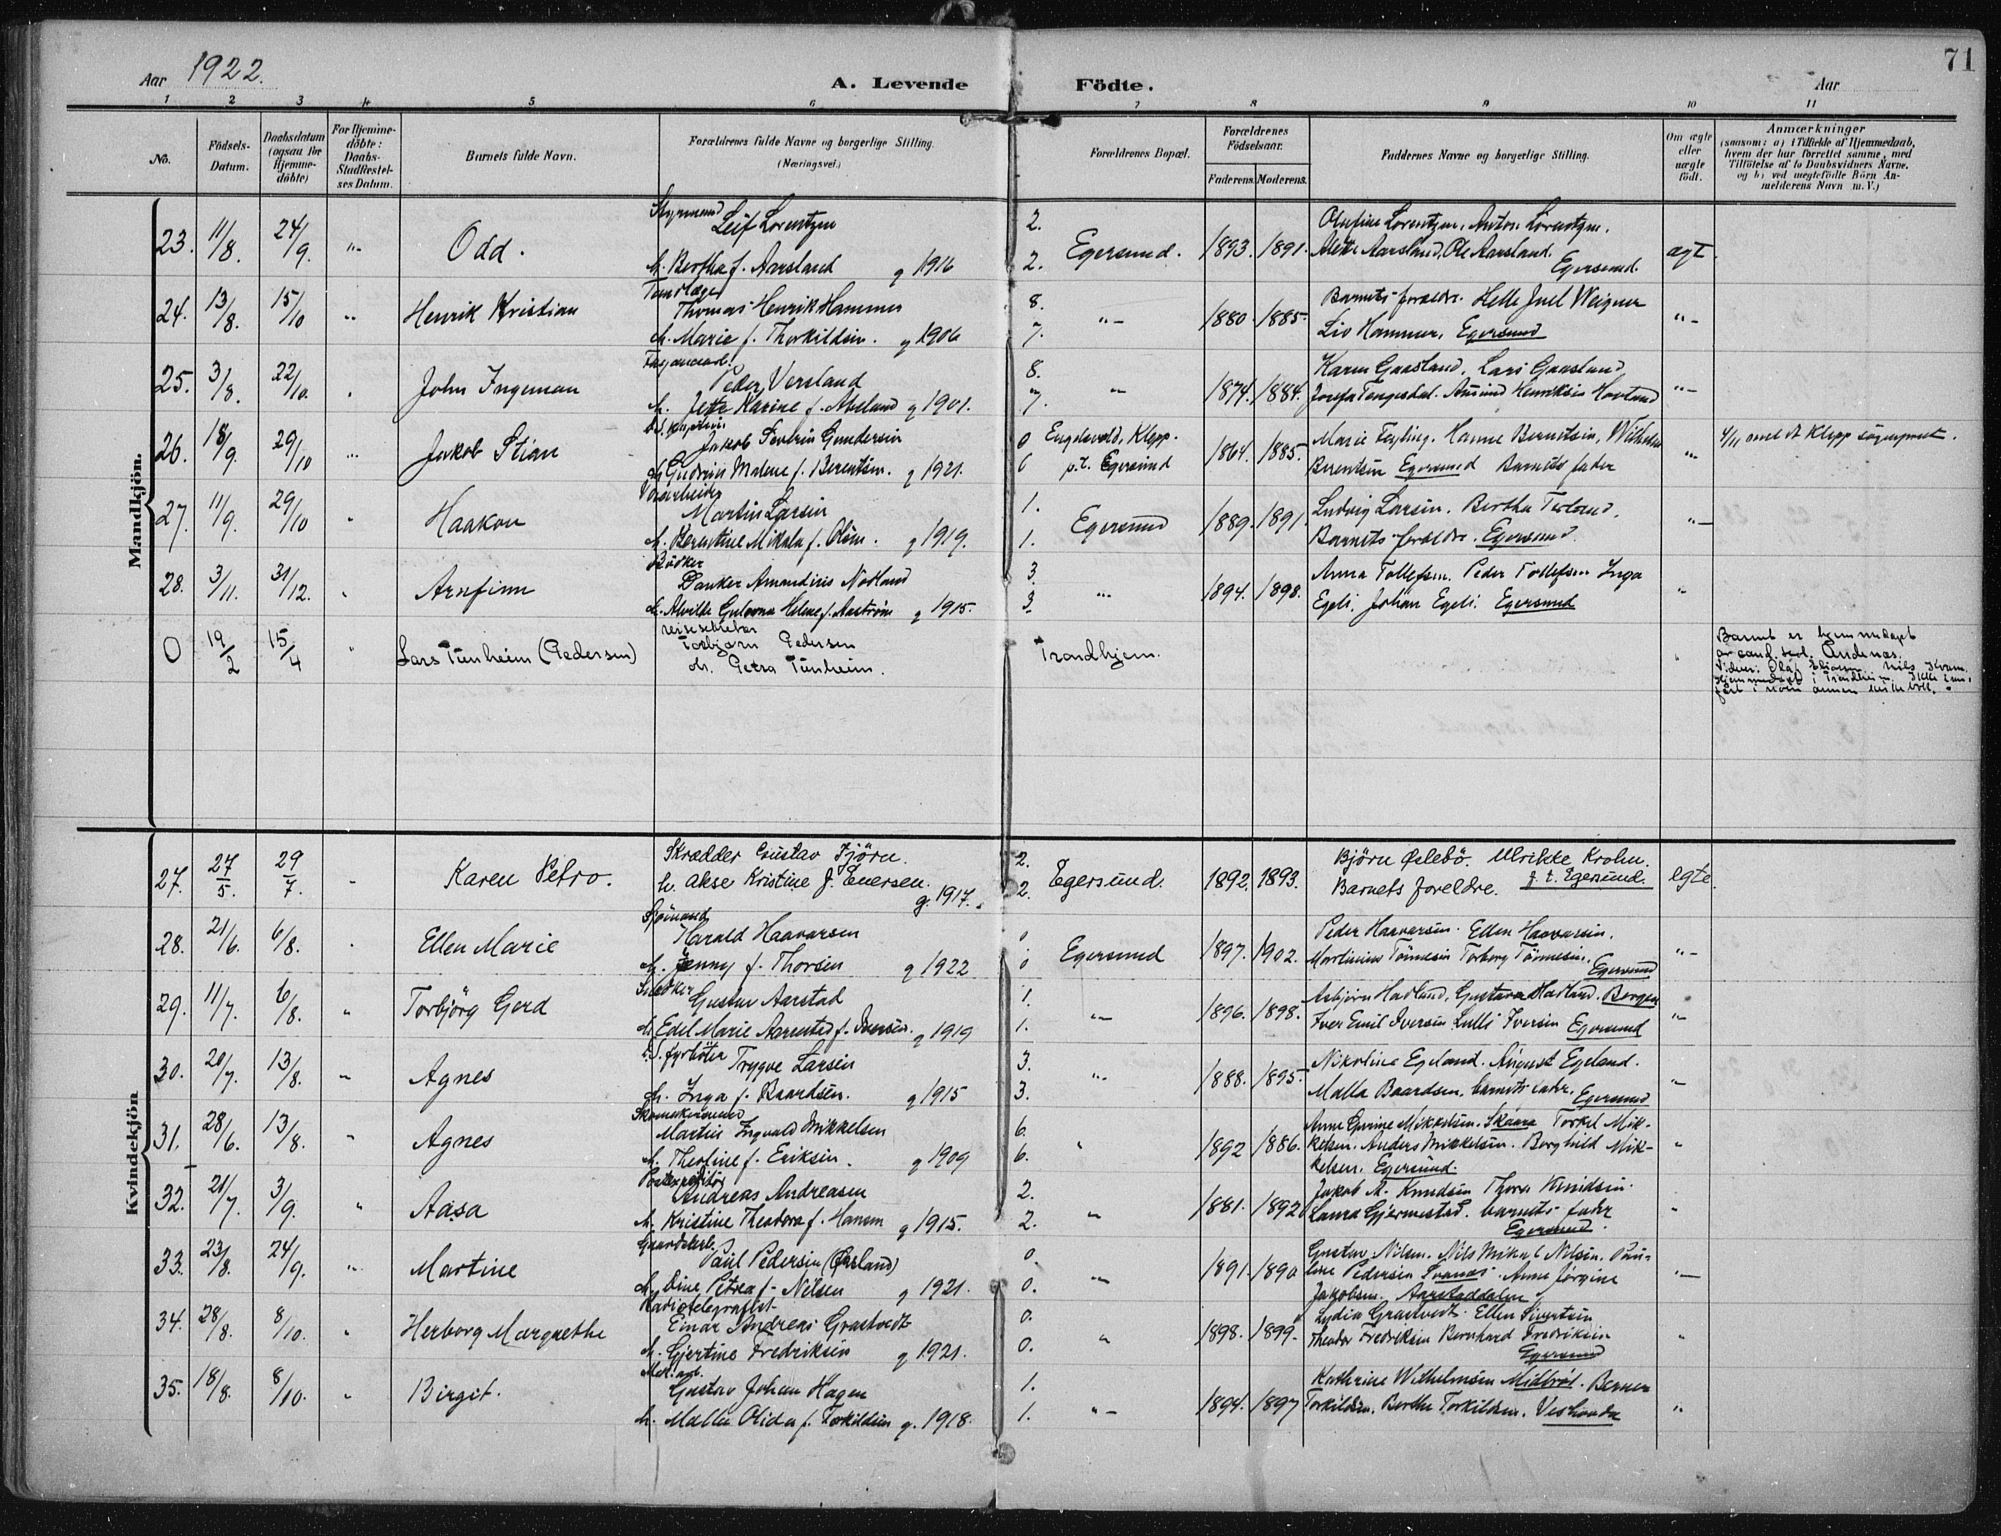 71
Aar 1922.
A. Levende Födte.
Aar
1 2 3 4 5 6 7 8 9 10 11
No.
Födsels-Datum.
Daabsdatum (ogsaa for Hjemme-döbte)
For Hjemme-döbte: Daabs-Stadfæstel-ses Datum.
Barnets fulde Navn.
Forældrenes fulde Navne og borgerlige Stilling. (Næringsvei.)
Forældrenes Bopæl.
Forældrenes Födselsaar.
Faderens. Moderens.
Faddernes Navne og borgerlige Stilling.
Om ægte eller uægte födt.
Anmærkninger
(saasom: a) i Tilfælde af Hjemmedaab, hvem der har forrettet samme, med Tilföielse af to Daabsvidners Navne, og b) ved uegtefödte Börn An-melderens Navn m. V.)
Mandkjön.
23. 11/8. 24/9. Odd. Styrmand Leif Lorentzen
h. Bertha f. Aarsland g 1916
2. 2. Egersund. 1893. 1891. Olufine Lorentzen, Anton Lorentzen.
Alette Aarsland, Ole Aarsland. Egersund. ægt.
24. 13/8. 15/10 Henrik Kristian Tandlæge Thomas Henrik Hammer
h. Marie f. Thorkildsen. g 1906
8. 7. 1880. 1885. Barnets forældre. Helle Juel Weigner
Liv Hammer, Egersund
25. 3/8. 22/10. John Ingeman Peder Versland
h. Jette Karine f. Aasland g 1901.
8. 7. 1874. 1884. Karen Gaasland, Lars Gaasland
Josefa Tengesdal. Hovland
26. 18/9. 29/10 Jakob Stian Jakob Severin Gundersen
h. Gudrun Malene f. Berentsen. g 1921.
0 0 Engelsvold, Klepp. p.t. Egersund 1864. 1885. Marie Feyling. Hanne Berentsen, Wilhelm
Berentsen Egersund Barnets fader
4/11 meldt Klepp sogneprest.
27. 11/9. 29/10 Haakon Martin Larsen
h. Berentine Mikala f. Olsen. g 1919.
1. 1. Egersund 1889. 1891. Ludvig Larsen. Bertha
Barnets forældre. Egersund.
28. 3/11. 31/12. Arnfinn Bödker Danker Amandius Nodland
h. Alvilde Gulovna Helene f. Aastrøm g 1915.
3. 3. 1894. 1898. Anna Tollefsen. Peder Tollefsen Inga
Egeli. Johan Egeli. Egersund
0 19/2 15/4 Lars Tunheim (Pedersen) reisesekretær Torbjørn Pedersen
h. Petra Tunheim.
Trondhjem.
Barnet er hjemmedøpt
av cand. teol. Andenæs.
Vidner: Olaf Nils
Hjemmedøpt i Trondheim. Ikke inn-
ført i noen annen kirkebok.
Kvindekjön
27. 27/5. 29/7. Karen Petro. Skrædder Gustav Fjörn.
h. Aase Kristine f. Enersen. g. 1917.
2. 2. Egersund. 1892. 1893. Björn Øslebö. Ulrikke Krohn.
Barnets foreldre. p. t. Egersund. egte.
28. 21/6. 6/8. Ellen Marie Sjömand Harald Haavarsen
h. Jenny f. Thorsen g 1922
0 0 Egersund 1897. 1902. Peder Haavarsen. Ellen Haavarsen.
Martinius Tönnesen Torborg Tönnesen. Egersund
29. 11/7. 6/8. Torbjörg Gerd Gustav Aarstad
h. Edel Marie Aarrestad f. Iversen. g 1919
1. 1. 1896. 1898. Asbjörn Hadland, Gustava Hadland, Bergen
Iver Emil Iversen Lulli Iversen Egersund
30. 20/7. 13/8. Agnes D.S. fyrböter Trygve Larsen
h. Inga f. Baardsen. g 1915
3. 3. 1888. 1895. Nikoline Egeland. August Egeland.
Malla Baardsen, barnets fader. Egersund
31. 28/6. 13/8. Agnes Martin Ingvald Mikkelsen
h. Theofine f. Eriksen. g 1909
6. 6. 1892 1886. Anne Gurine Mikkelsen. Skaara Torkel Mik-
kelsen. Anders Mikkelsen. Borghild Mik-
kelsen. Egersund.
32. 21/7. 3/9. Aasa Postexpeditör Andreas Andreasen
h. Kristine Theodora f. Hansen g 1915.
2. 2. 1881. 1892 Jakob A. Knudsen Thora Knudsen.
Laura Gjermestad. barnets fader
Egersund.
33. 23/8. 24/9. Martine Gaardarb. Paul Pedersen (Örsland)
h. Dine Petrea f. Nilsen g 1921.
0. 0. 1891. 1890 Gustav Nilsen. Nils Mikal Nilsen. Pau-
line Pedersen Svanes. Anne Jörgine
Jakobsen. Aarstaddalen
34. 28/8. 8/10. Herborg Margrethe Radiotelegrafist Einar Andreas Grastvedt
h. Gjertine Fredriksen g 1921.
0. 0. 1898. 1899. Lydia Grastvedt. Ellen Sivertsen
Theodor Fredriksen Bernhard Fredriksen
Egersund
35. 18/8. 8/10. Birgit. Gustav Johan Hagen
h. Mallie Olida f. Torkildsen g. 1918.
1. 1. 1894. 1897 Kathrine Wilhelmsen Midbröd. Berner
Torkildsen. Berthe Torkildsen.